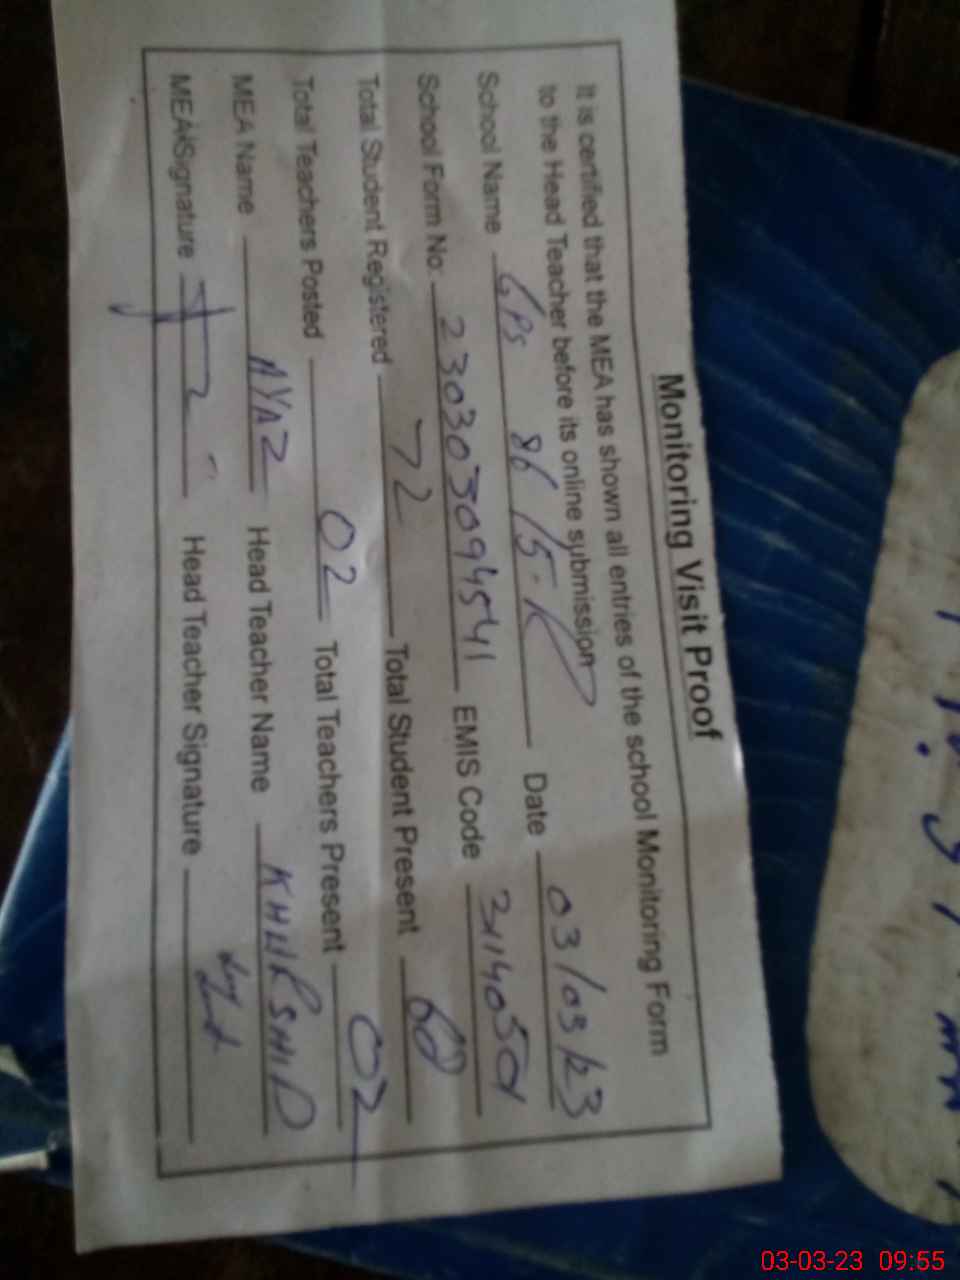 Monitoring Visit Proof
It is certified that the MEA has shown all entries of the school Monitoring Form
to the Head Teacher before its online submission
School Name GPS 86/5-R Date 03/03/23
School Form No: 230303094541 EMIS Code
Total Student Registered 72 Total Student Present 60
Total Teachers Posted 02 Total Teachers Present 02
MEA Name AYAZ Head Teacher Name KHURSHID
MEA Signature Head Teacher Signature
03-03-23 09:55